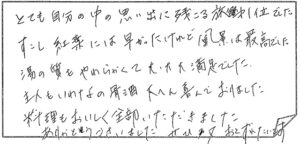 とても自分の中の思い出に残こる旅館第1位でした
すこし紅葉には早かったけれど風景は最高でした
湯の質もやわらかくて大・大・大満足でした。
主人もいわなの骨酒大へん喜んでおりました
料理もおいしく全部いただきました
ありがとうございました ぜひまたおとずれたいです